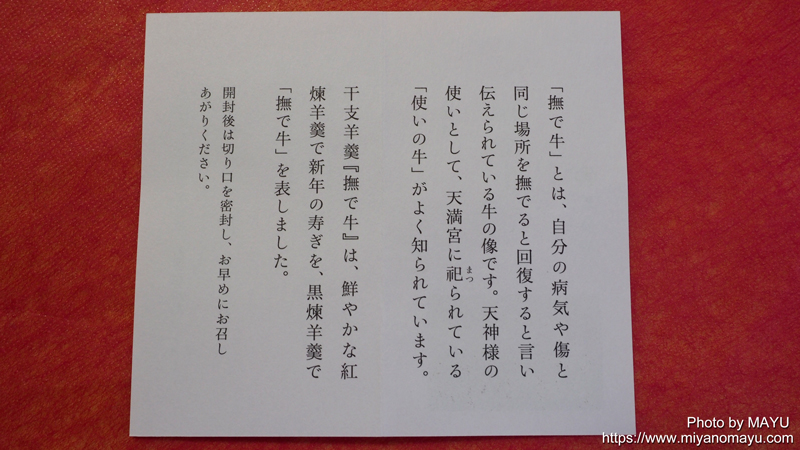 「撫で牛」とは、自分の病気や傷と
同じ場所を撫でると回復すると言い
伝えられている牛の像です。天神様の
使いとして、天満宮に祀られている
まつ
「使いの牛」がよく知られています。
干支羊羹『撫で牛』は、鮮やかな紅
煉羊羹で新年の寿ぎを、黒煉羊羹で
「撫で牛」を表しました。
開封後は切り口を密封し、お早めにお召し
あがりください。
Photo by MAYU
https://www.miyanomayu.com